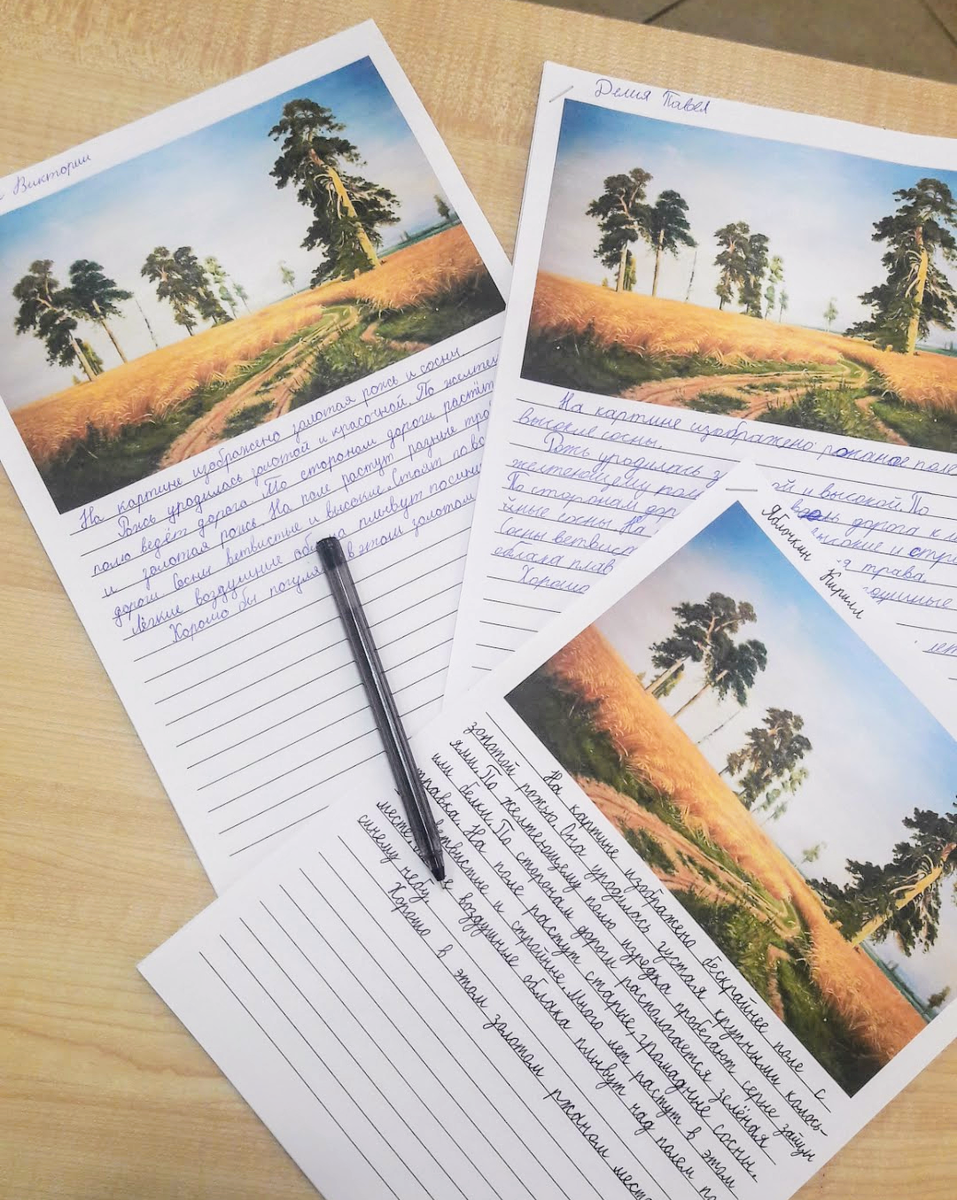 Виктории
На картине изображено золотая рожь и сосны
Рожь уродилась золотой и красочной. По желтею
полю ведёт дорога. По сторонам дороги растёт
и золотая рожь. На поле растут разные тра
дороги сосны ветвистые и высокие. Стоят
Лёгкие воздушные облака плывут
Хорошо бы погулять в этом золотом
Делия Павел
На картине изображено ржаное поле
высокие сосны.
Рожь уродилась ой и высокой. По
желтеющему полю дорога к
По сторонам дор высокие и стро
йные сосны. На я трава.
Сосны ветвист оздушные
облака плав
Хорошо
Яблочкин Кирилл
На картине изображено бескрайнее поле с
золотой рожью. Она уродилась густая с крупными колось-
ями. По желтеющему полю изредка пробегают серые зайцы
или белки. По сторонам дороги располагается зелёная
травка. На поле растут старые, громадные сосны.
ветвистые и стройные. Много лет растут в этом
месте. воздушные облака плывут над полем по
синему небу.
Хорошо в этом золотом ржаном месте